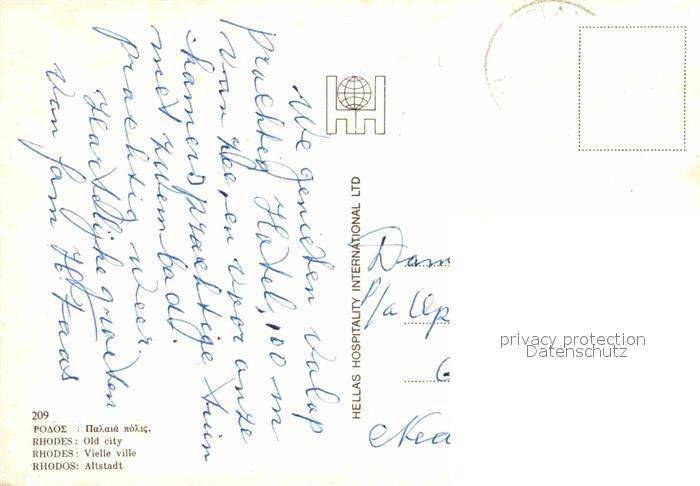 We genieten volop
prachtig Hotel, 100 m
van Zee, en voor onze
kamers prachtige tuin
met zwembad.
prachtig weer.
Hartelijke groeten
van fam H. Faas
HH
HELLAS HOSPITALITY INTERNATIONAL LTD
Dam
P/a
Nea
privacy protection
Datenschutz
209
ΡΟΔΟΣ : Παλαιά πόλις.
RHODES : Old city
RHODES : Vielle ville
RHODOS: Altstadt